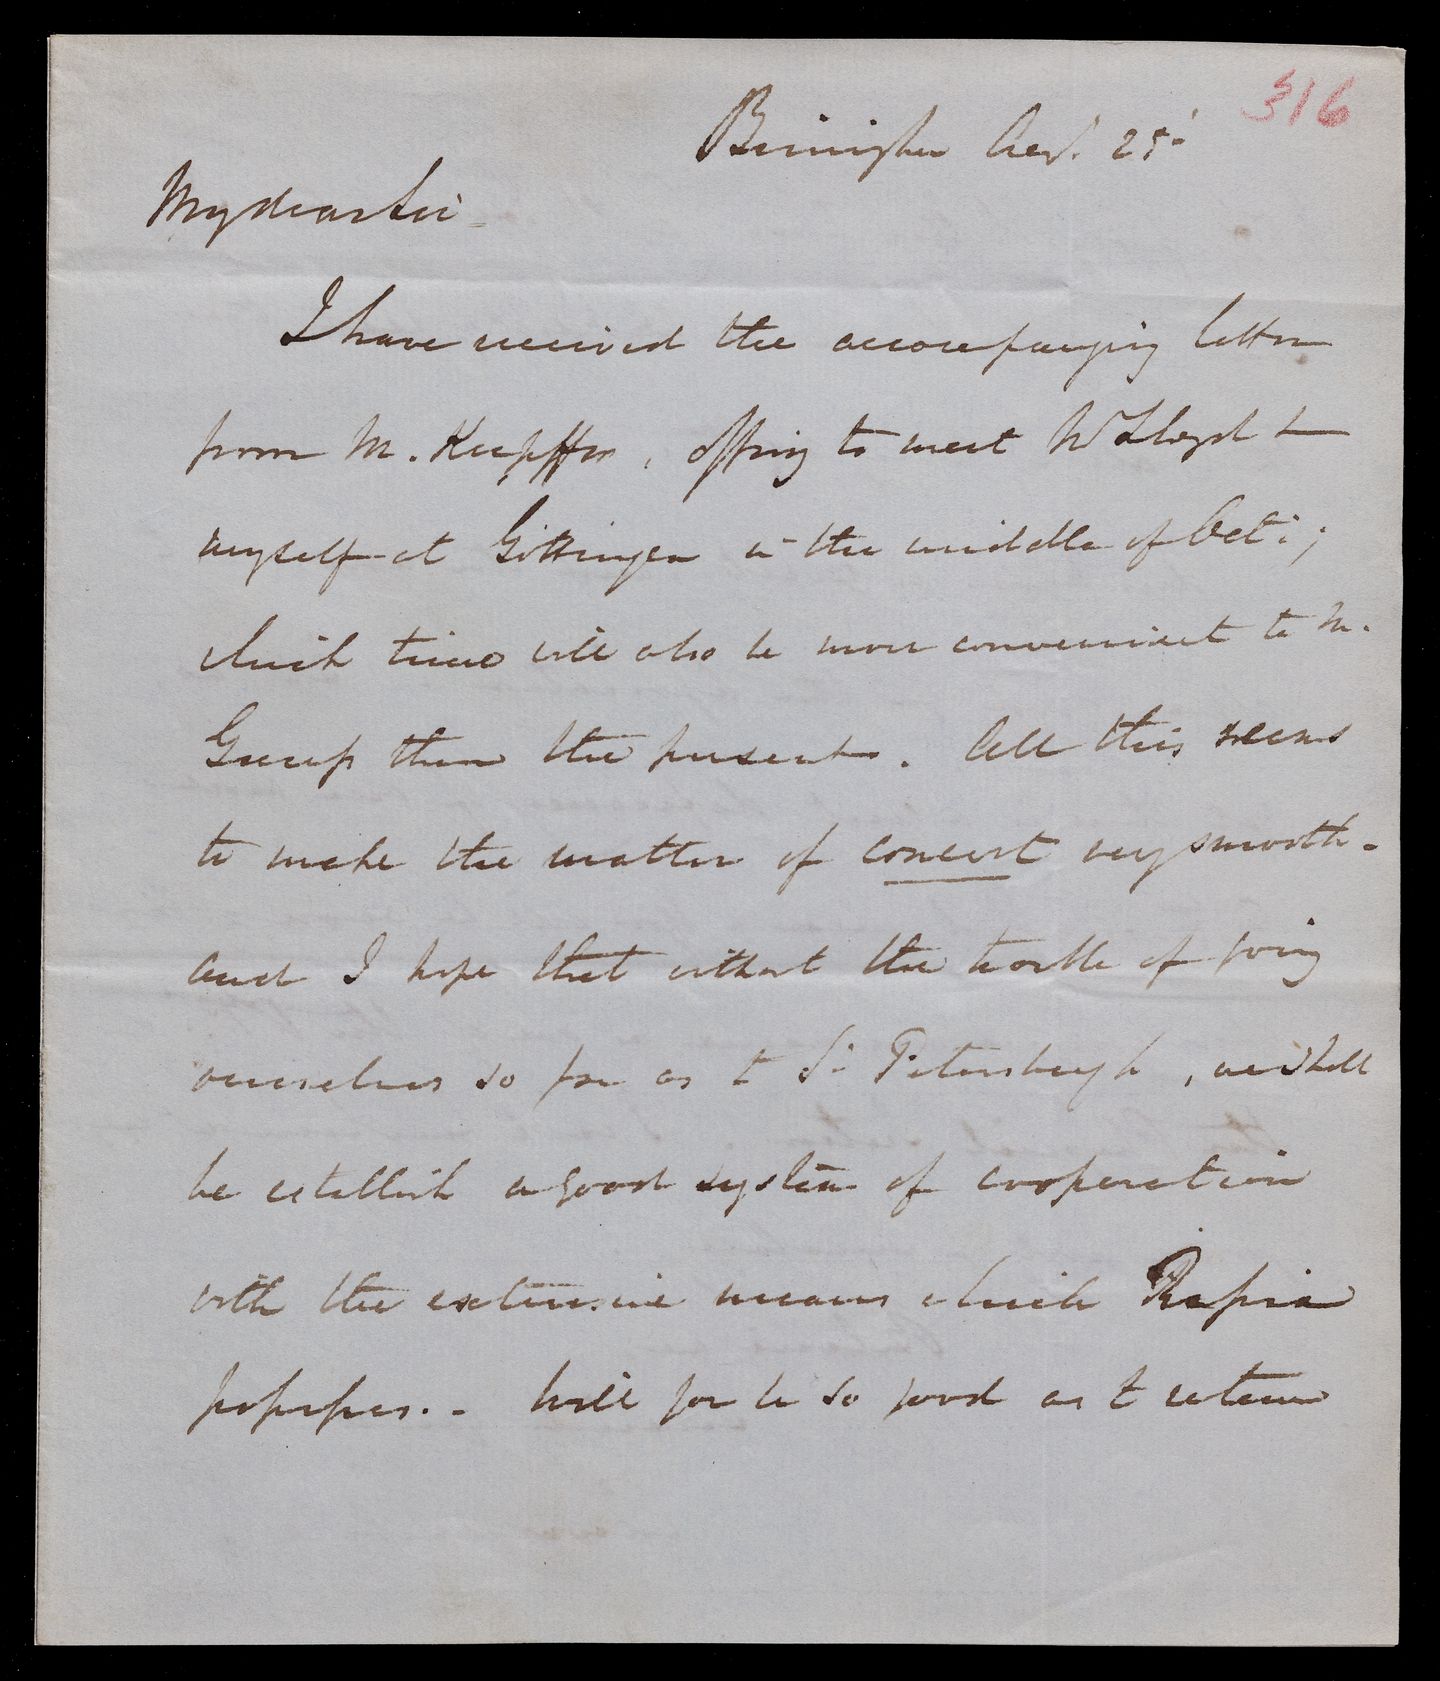 316
Birmingham Aug. 25.
My dear Sir
I have received the accompanying letter
from M. Kupffer, offering to meet Mr Lloyd &
myself at Göttingen in the middle of Oct.;
which time will also be more convenient to M.
Gauss than the present. All this seems
to make the matter of concert very smooth.
and I hope that without the trouble of going
ourselves so far as to St. Petersburgh, we shall
be establish a good system of cooperation
with the extensive means which Russia
possesses. - Will you be so good as to return